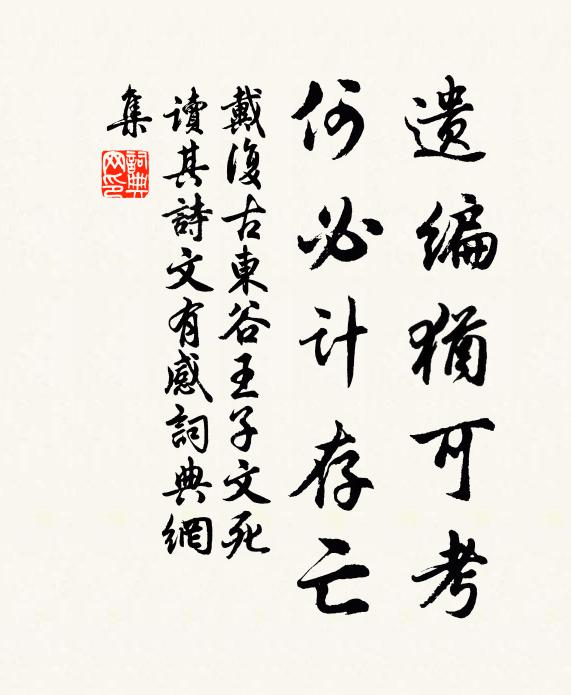 遗编猶可考
何必计存亡
戴復古東谷王子文死
讀其詩文有感詞典網
集
詞典
网印